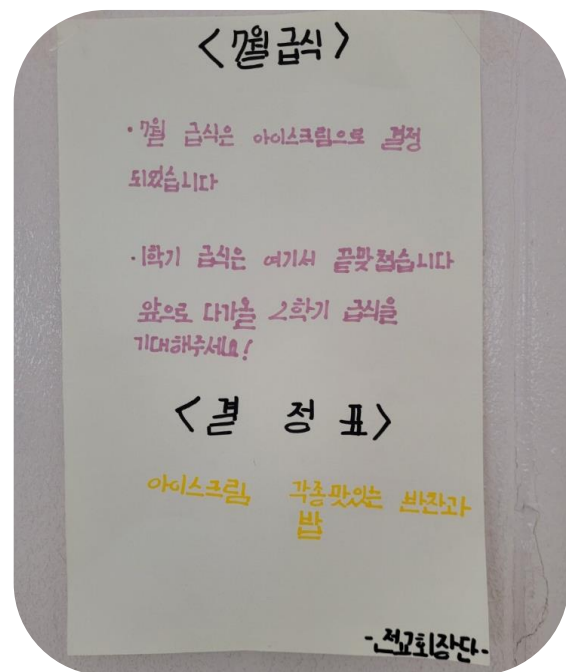 <7월 급식>
·7월 급식은 아이스크림으로 결정
되었습니다
·1학기 급식은 여기서 끝맞첩습니다
앞으로 다가올 2학기 급식을
기대해주세요!
<결 정 표>
아이스크림 각종맛있는 반찬과
밥
-전교회장단-